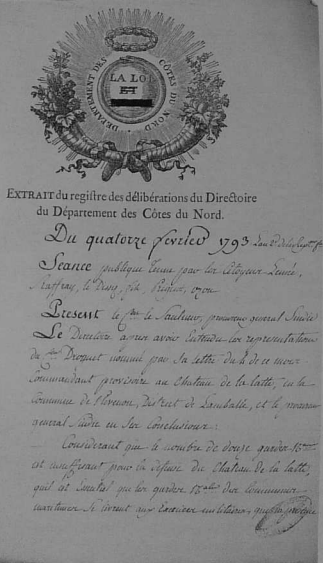 DÉPARTEMENT DES CÔTES DU NORD
LA LOI
ET
EXTRAIT du regiſtre des délibérations du Directoire
du Département des Côtes du Nord.
Du quatorze fevrier 1793 L'an 2e de la Rep. f.
Séance publique tenue par les Citoyens
Present le Saulnier, procureur general Sindic
Le Directoire après avoir entendu les representations
du Droguet nommé par sa lettre du 4 de ce mois
Commandant provisoire au Chateau de la latte, en la
commune de Plevenon, District de Lamballe, et le procureur
general Sindic en ses conclusions :
Considerant que le nombre de douze gardes
est insuffisant pour la défense du Chateau de la latte,
qu'il est essentiel que les gardes des communes
maritimes se livrent aux Exercices militaires,